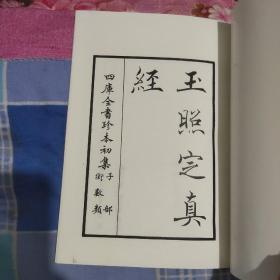 玉照定真
經
四庫全書珍本初集子部
術數類